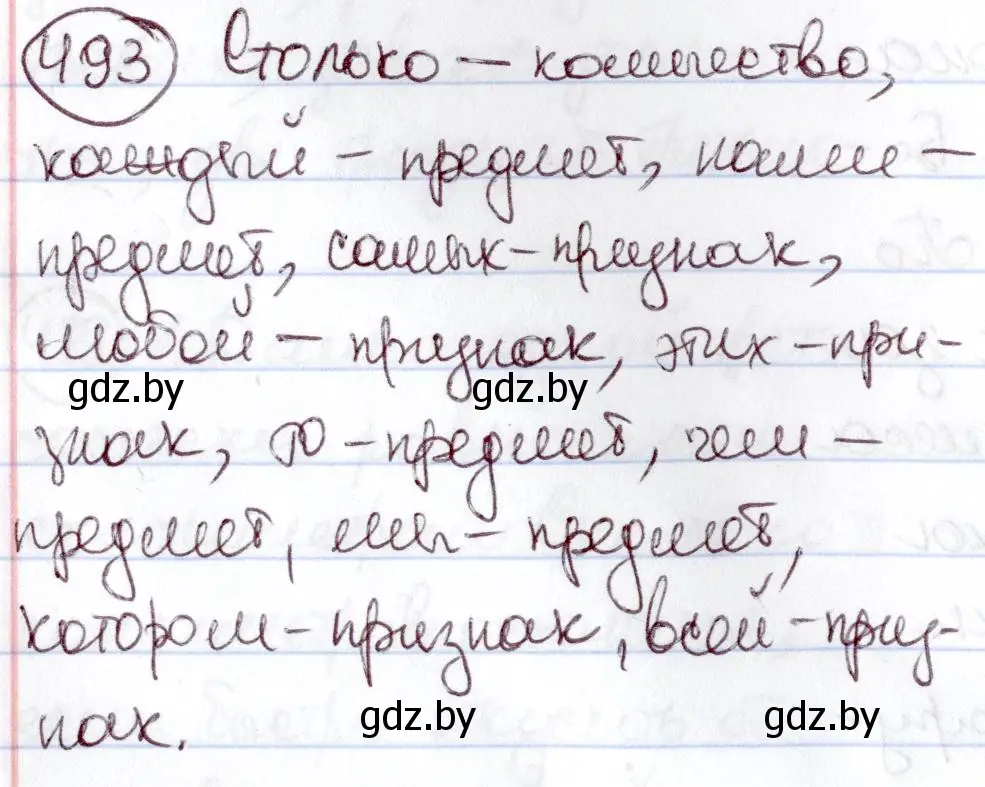 493 Столько – количество,
каждый – предмет, нами –
предмет, самых – признак,
любой – признак, этих – при-
gdz.by gdz.by
знак, то – предмет, чем –
предмет, мы – предмет,
котором – признак, всей – приз-
gdz.by gdz.by
нак.